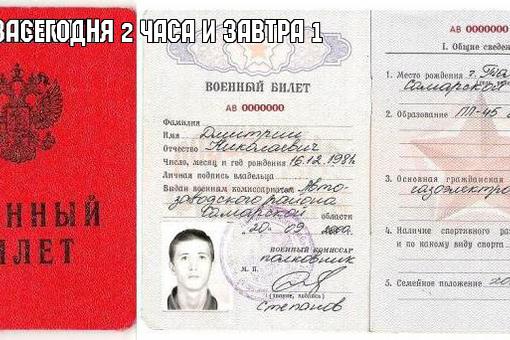 ЗАСЕГОДНЯ 2 ЧАСА И ЗАВТРА 1
ЕННЫЙ
ИЛЕТ
ВОЕННЫЙ БИЛЕТ
АВ 0000000
Фамилия
Имя Дмитрий
Отчество Николаевич
Число, месяц и год рождения 16.12.198
Личная подпись владельца
Выдан военным комиссариатом Авто-
заводского района
Самарской области
20 09
ВОЕННЫЙ КОМИССАР
полковник
М. П.
(звание, подпись)
Степанов
АВ 0000000
I. Общие сведе
1. Место рождения г.
Самарской
2. Образование ПЛ-45
3. Основная гражданская
газоэлектро
4. Наличие спортивного раз
и по какому виду спорта
5. Семейное положение хо